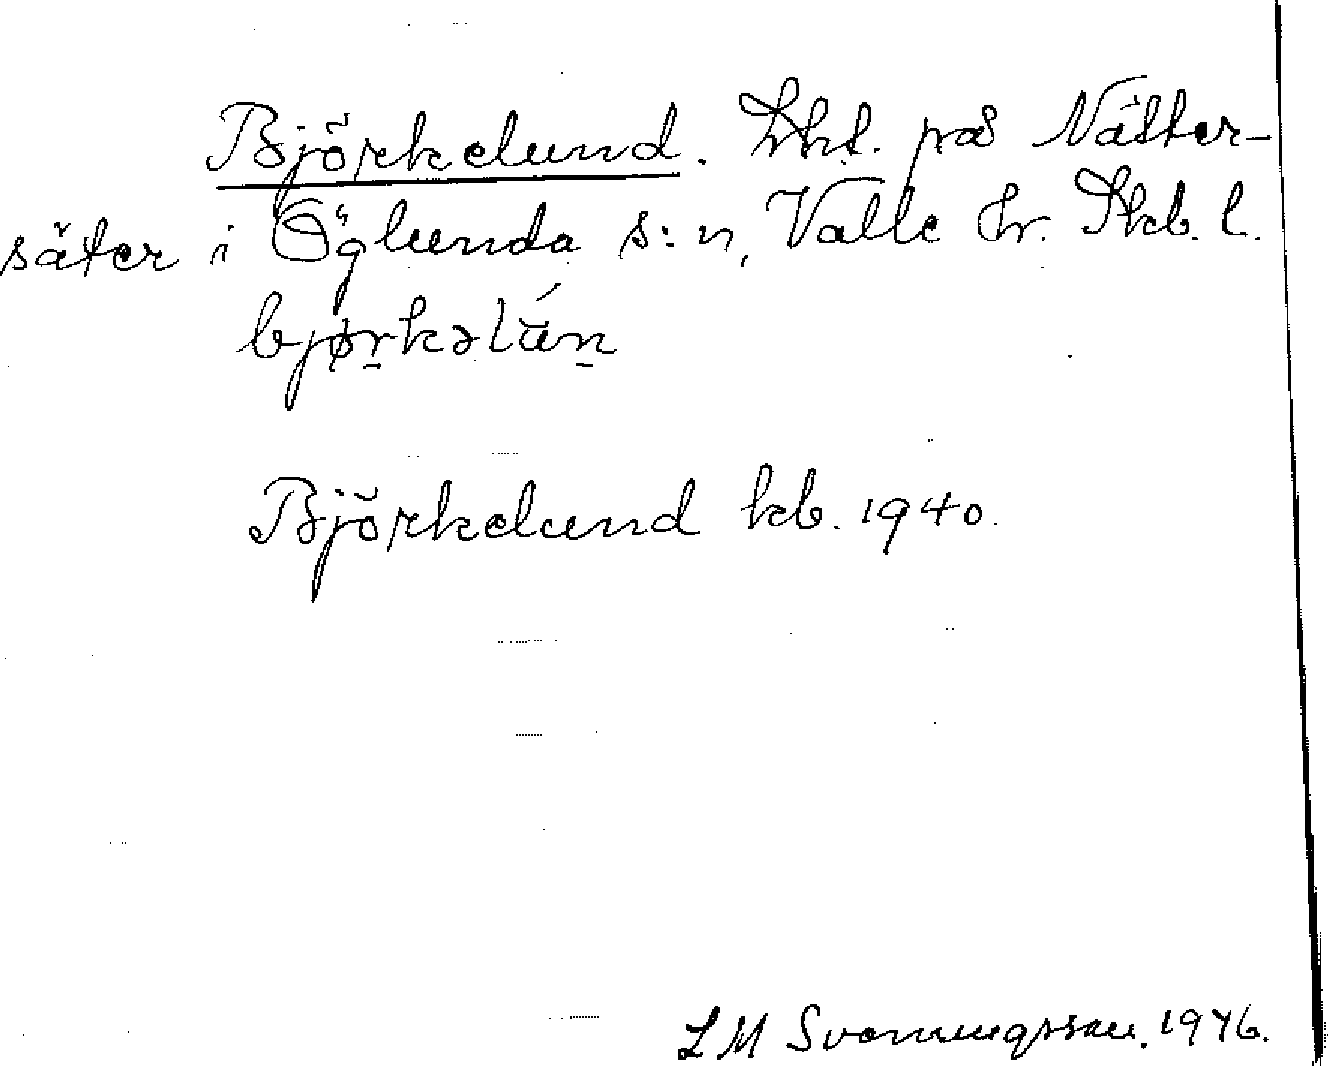 Björkelund. Lht. på Nätter-
säter i Öglunda s:n, Valle hr. Skb. l.
bjørkəlún
Björkelund kb. 1940.
L M Svenningsson. 1946.